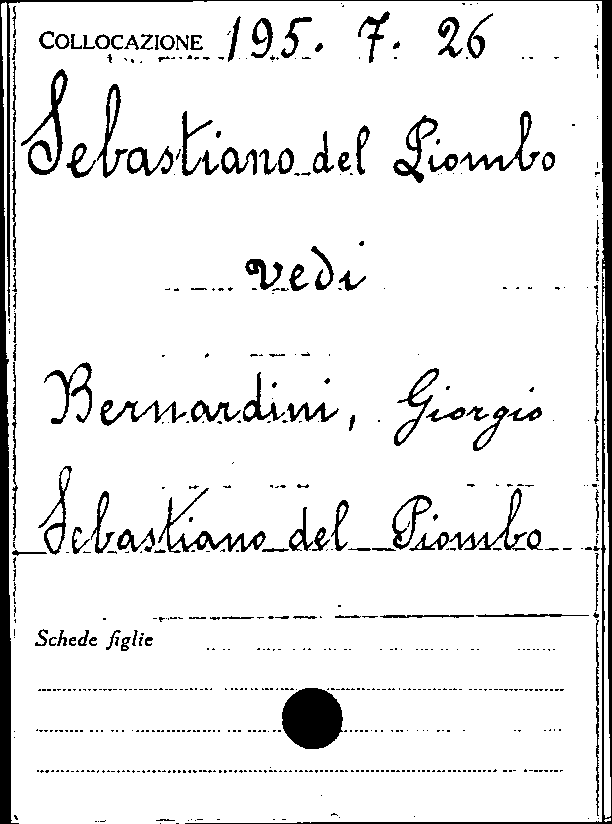 COLLOCAZIONE 195. 7. 26
Sebastiano del Piombo
vedi
Bernardini, Giorgio
Sebastiano del Piombo
Schede figlie